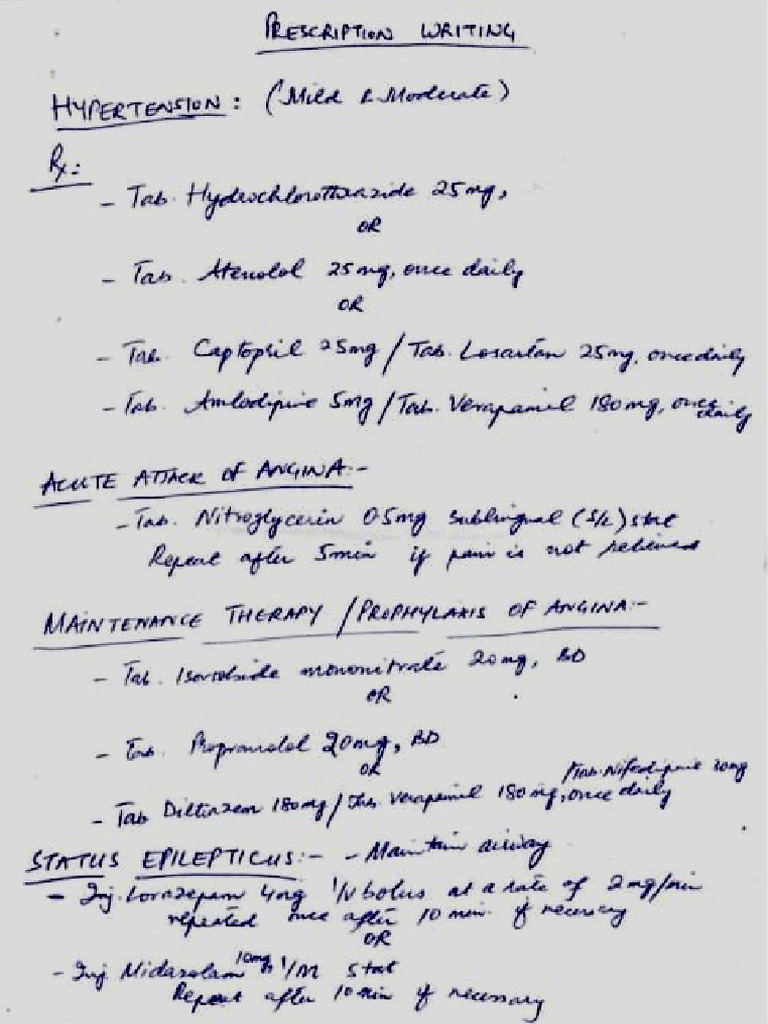 PRESCRIPTION WRITING
HYPERTENSION: (Mild & Moderate)
Rx:
- Tab. Hydrochlorothiazide 25mg,
OR
- Tab. Atenolol 25mg, once daily
OR
- Tab. Captopril 25mg / Tab. Losartan 25mg, once daily
- Tab. Amlodipine 5mg / Tab. Verapamil 180mg, once daily
ACUTE ATTACK OF ANGINA:-
- Tab. Nitroglycerin 0.5mg sublingual (S/L) stat
Repeat after 5min if pain is not relieved
MAINTENANCE THERAPY / PROPHYLAXIS OF ANGINA:-
- Tab. Isosorbide mononitrate 20mg, BD
OR
- Tab. Propranolol 20mg, BD
OR
/Tab. Nifedipine
- Tab Diltiazem 180mg / Tab. Verapamil 180mg, once daily
STATUS EPILEPTICUS:- - Maintain airway
- Inj. Lorazepam 4mg I/V bolus at a rate of 2mg/min
repeated once after 10 min. if necessary
OR
- Inj Midazolam 10mg I/M stat
Repeat after 10 min if necessary